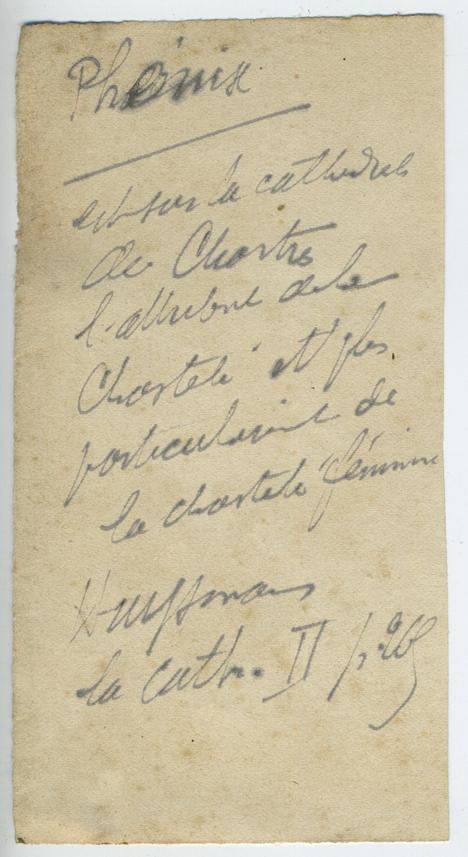 Phœnix
est sur la cathédrale
de Chartres
l'attribut de la
Chasteté et plus
particulièrement de
la chasteté féminine
Huysmans
la Cath. II p.